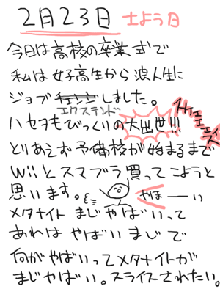 2月23日 土よう日
今日は高校の卒業式で
私は女子高生から浪人生に
ジョブしました。
エクステンド
ハセヲもびっくりの大出世!!!
とりあえず予備校が始まるまで
Wiiとスマブラ買ってこようと
思います。
やはーい
メタナイトまじやばいって
あれはやばいまじで
何がやばいってメタナイトが
まじやばい。スライスされたい。